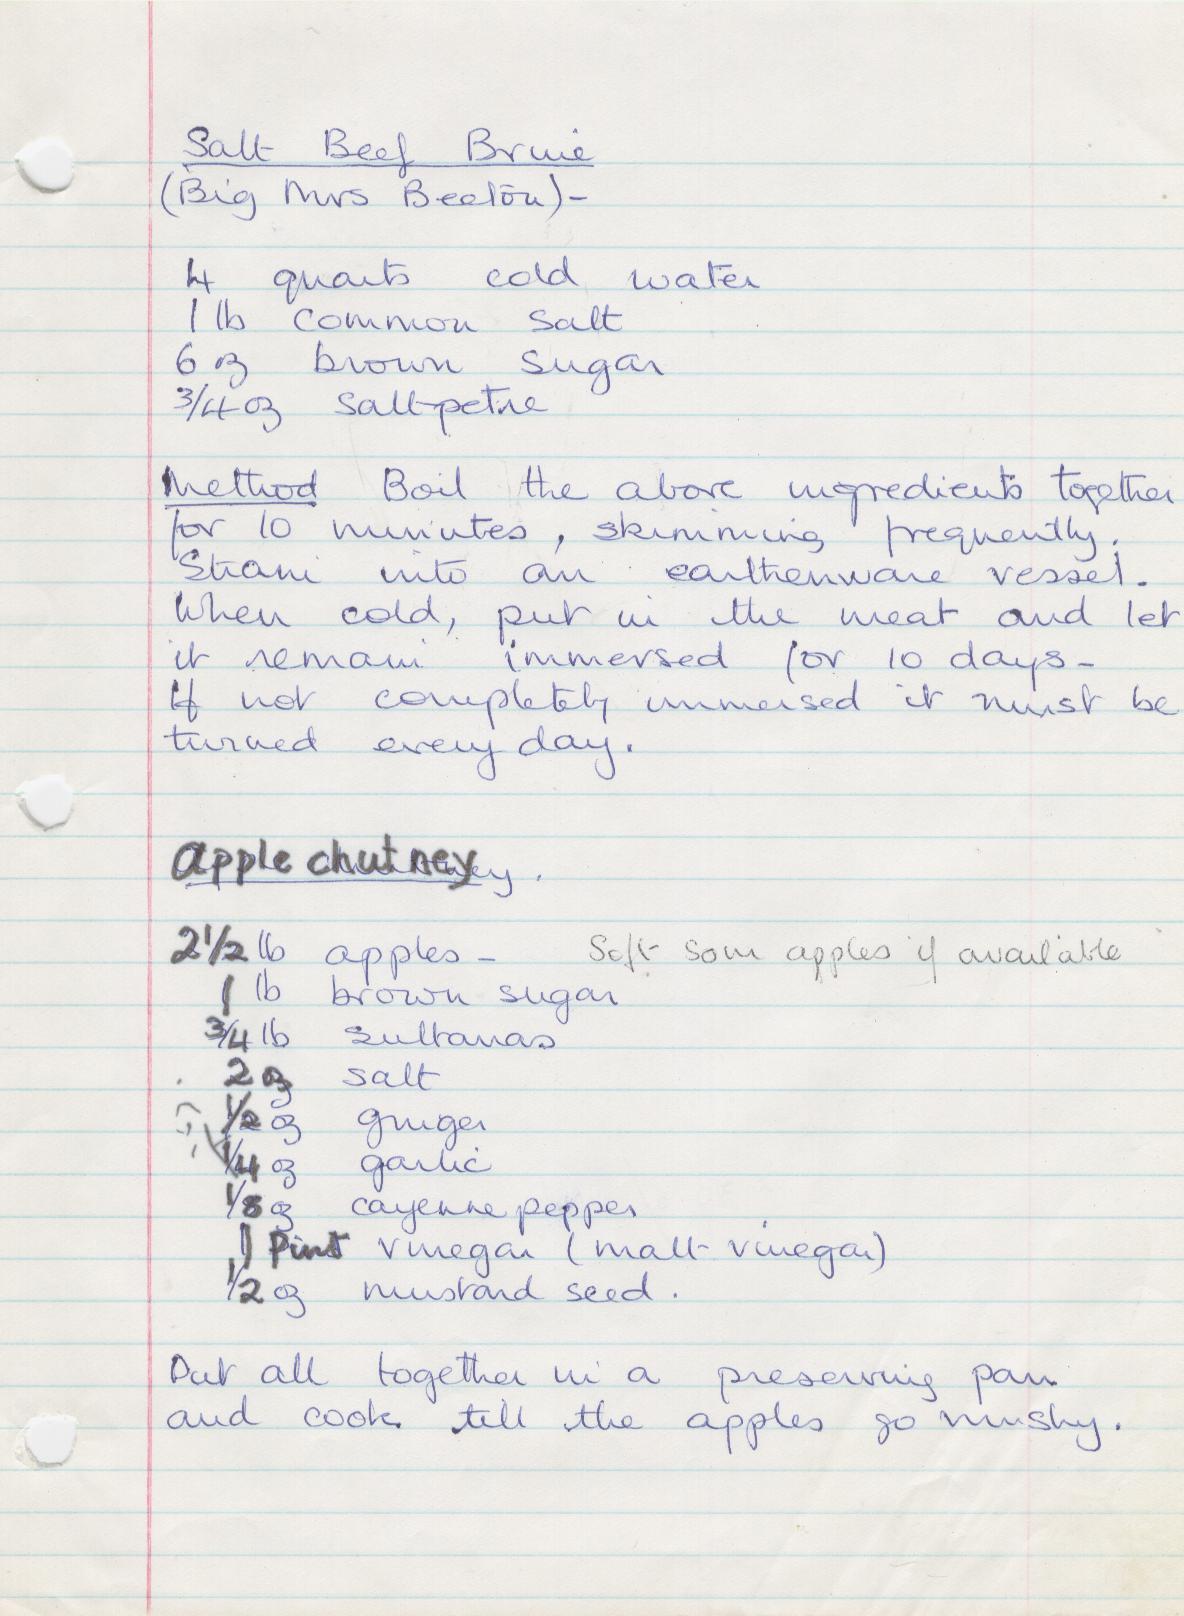 Salt Beef Brine
(Big Mrs Beeton)-
4 quarts cold water
1 lb common salt
6 oz brown sugar
3/4 oz saltpetre
Method Boil the above ingredients together
for 10 minutes, skimming frequently.
Strain into an earthenware vessel.
When cold, put in the meat and let
it remain immersed for 10 days-
If not completely immersed it must be
turned every day.
Apple chutney.
2 1/2 lb apples - Soft sour apples if available
1 lb brown sugar
3/4 lb sultanas
2 oz salt
1/2 oz ginger
1/4 oz garlic
1/8 oz cayenne pepper
1 Pint vinegar (malt vinegar)
1/2 oz mustard seed.
Put all together in a preserving pan
and cook till the apples go mushy.